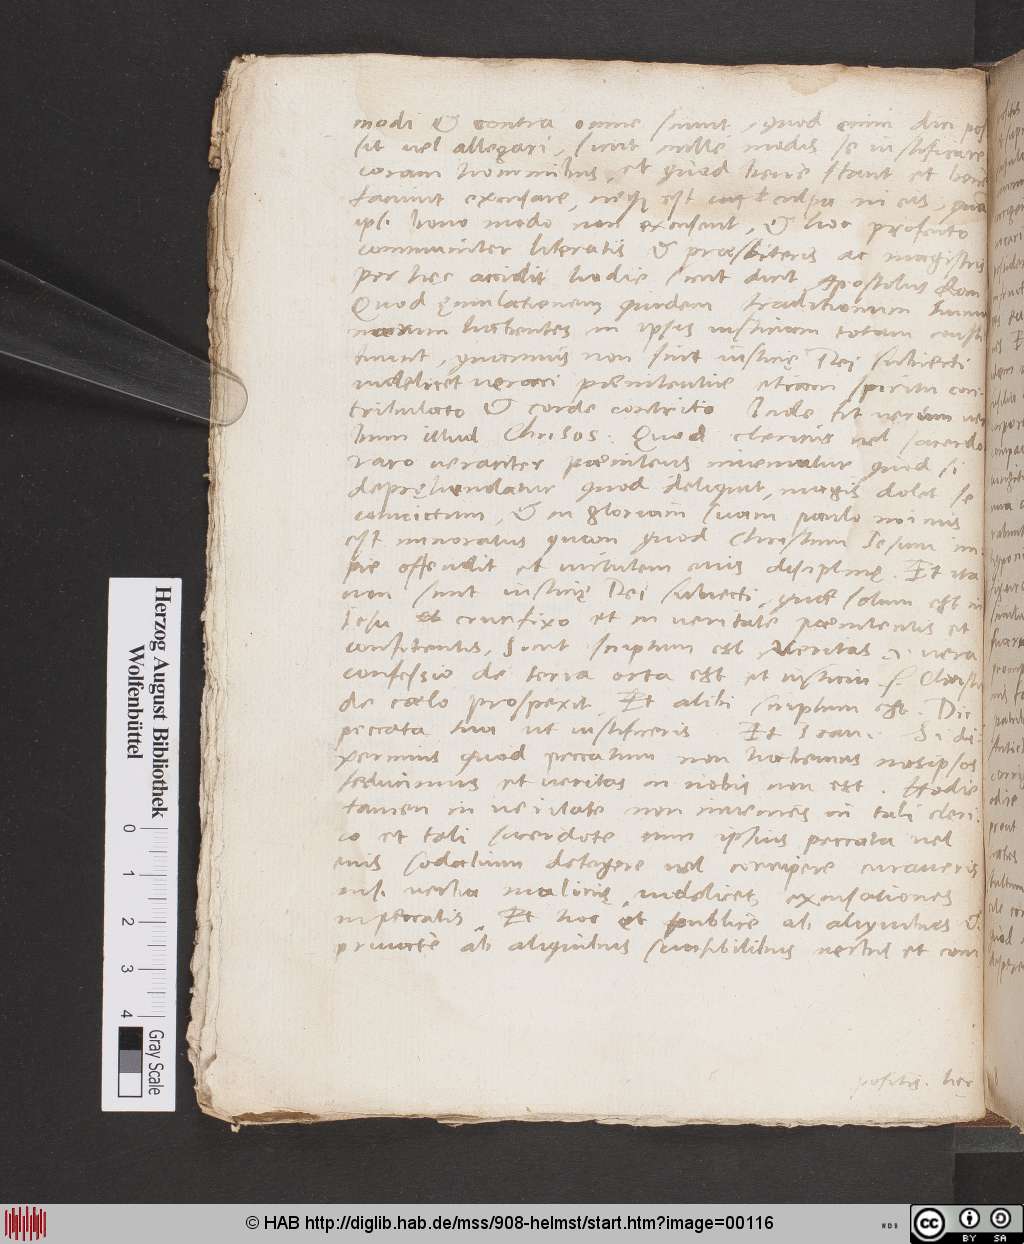 modi & contra omne sciunt, quod enim dici pos
sit vel allegari, sciunt mille modis se iustificare
coram hominibus, et quod bene stant et bene
faciunt excusare, neq; est culpa in eis, qua
ipsi bono modo non excusent, & hoc profecto
communiter literatis & præsbiteris ac magistris
per hec accidit hodie sicut dicit Apostolus Rom
Quod ęmulationem quidem traditionum huma
narum habentes in ipsis iusticiam totam consti
tuunt, quamuis non sint iusticię Dei subiecti
videlicet veraci pœnitentiæ etiam spiritu con-
tribulato & corde contrito Inde fit verum ver
bum illud Chrisos. Quod clericus vel sacerdo
raro veraciter pœnitens inueniatur quod si
depręhendatur quod deliquit, magis dolet se
conuictum, & in gloriam suam paulo minus
est minoratus quam quod Christum Iesum im
pie offendit et virtutem eius disciplinę. Et ita
non sunt iusticię Dei subiecti, quæ solum est in
Iesu et crucifixo et in veritate pœnitentis et
confitentis, Sicut scriptum est Veritas .i. vera
confessio de terra orta est et iusticia s. Christi
de cœlo prospexit. Et alibi scriptum est. Dic
peccata tua ut iustificeris. Et Ioan. Si di-
xerimus quod peccatum non habemus nosipsos
seducimus et veritas in nobis non est. Hodie
tamen in veritate non inuenies in tali cleri-
co et tali sacerdote cum ipsius peccata vel
eius sodalium detegere vel corripere curaueris
nisi verba malicię, videlicet excusationes
in peccatis. Et hoc et publice ab aliquibus &
priuatè ab aliquibus sensibilibus verbis et com
positis. hec
Herzog August Bibliothek
Wolfenbüttel
0 1 2 3 4
Gray Scale
© HAB http://diglib.hab.de/mss/908-helmst/start.htm?image=00116
WDB
cc BY SA